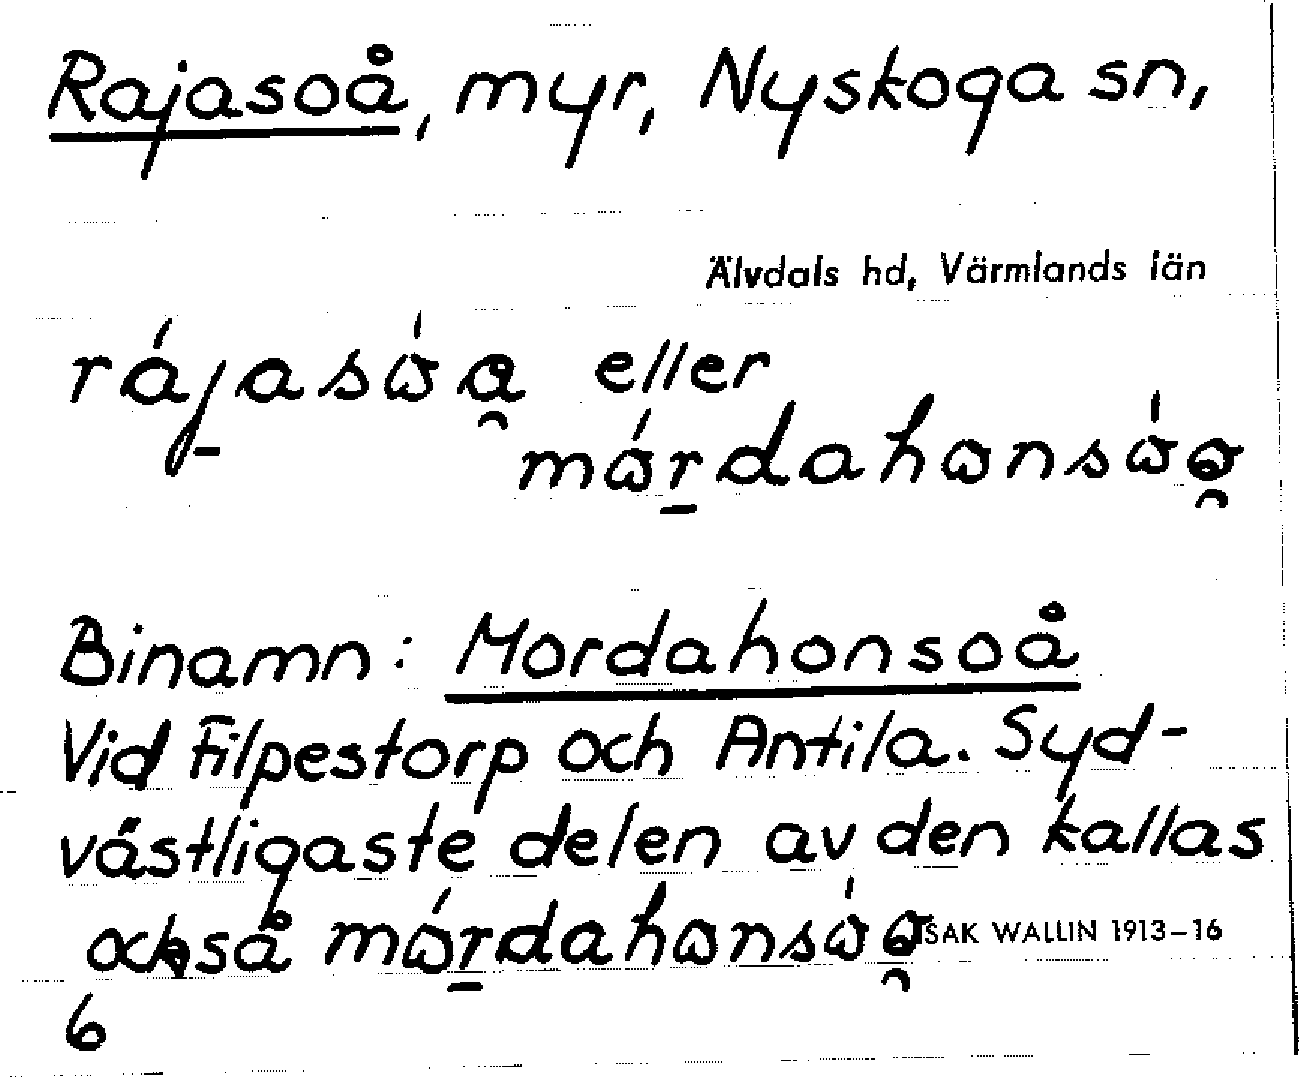 Rajasoå, myr, Nyskoga sn,
Älvdals hd, Värmlands län
eller
Binamn: Mordahonsoå
Vid Filpestorp och Antila. Syd-
västligaste delen av den kallas
också ISAK WALLIN 1913–16
6